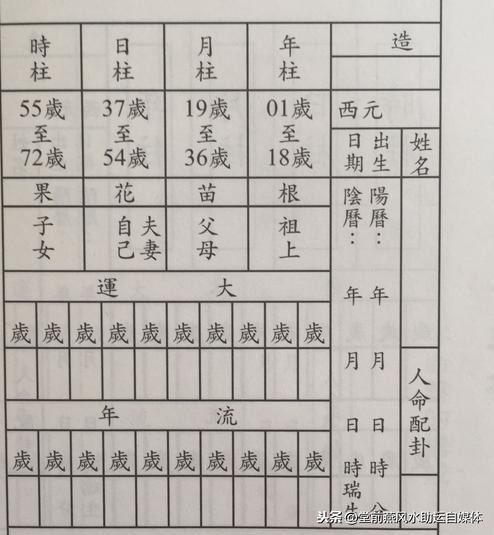 造
西元
姓名
出生
日期
陽曆：年月日時分
陰曆：年月日時瑞生
人命配卦
年柱
月柱
日柱
時柱
01歲至18歲
19歲至36歲
37歲至54歲
55歲至72歲
根
苗
花
果
祖上
父母
夫妻
自己
子女
大運
歲 歲 歲 歲 歲 歲 歲 歲 歲 歲
流年
歲 歲 歲 歲 歲 歲 歲 歲 歲 歲
头条 @堂前燕风水助运自媒体